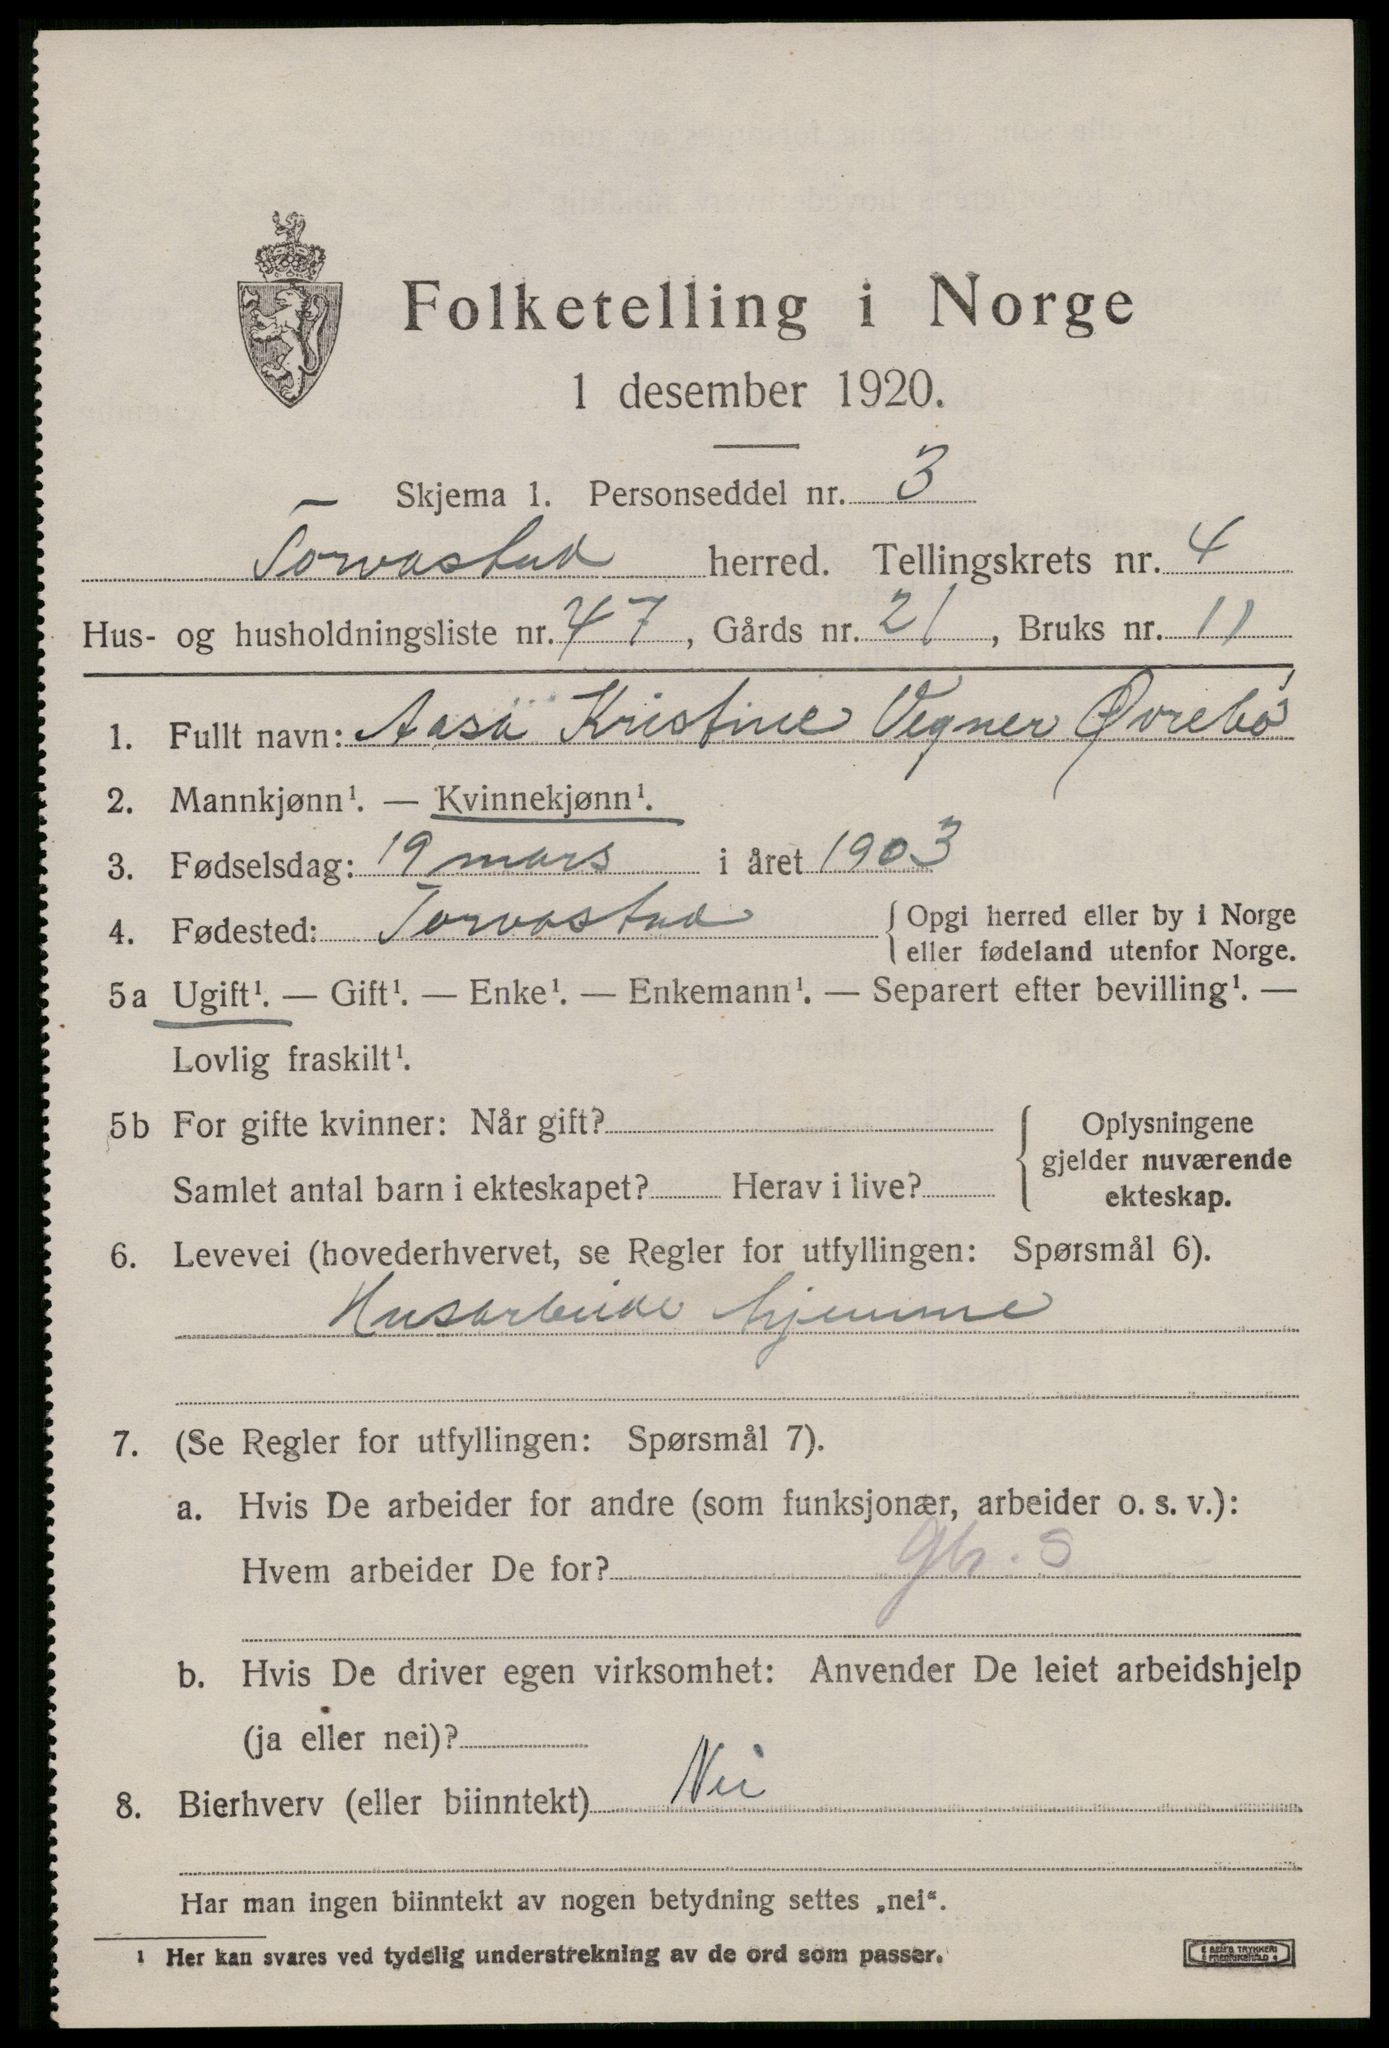 Folketelling i Norge
1 desember 1920.
Skjema 1. Personseddel nr. 3
Torvastad herred. Tellingskrets nr. 4
Hus- og husholdningsliste nr. 47, Gårds nr. 21, Bruks nr. 11
1. Fullt navn: Aasa Kristine Vegner Øvrebø
2. Mannkjønn¹. — Kvinnekjønn¹.
3. Fødselsdag: 19 mars i året 1903
4. Fødested: Torvastad { Opgi herred eller by i Norge
eller fødeland utenfor Norge.
5a Ugift¹. — Gift¹. — Enke¹. — Enkemann¹. — Separert efter bevilling¹. —
Lovlig fraskilt¹.
5b For gifte kvinner: Når gift? { Oplysningene
gjelder nuværende
Samlet antal barn i ekteskapet? Herav i live? ekteskap.
6. Levevei (hovederhvervet, se Regler for utfyllingen: Spørsmål 6).
Husarbeide hjemme
7. (Se Regler for utfyllingen: Spørsmål 7).
a. Hvis De arbeider for andre (som funksjonær, arbeider o. s. v.):
Hvem arbeider De for?
b. Hvis De driver egen virksomhet: Anvender De leiet arbeidshjelp
(ja eller nei)?
8. Bierhverv (eller biinntekt) Nei
Har man ingen biinntekt av nogen betydning settes „nei“.
¹ Her kan svares ved tydelig understrekning av de ord som passer.
SEM'S TRYKKERI
FREDRIKSHALD